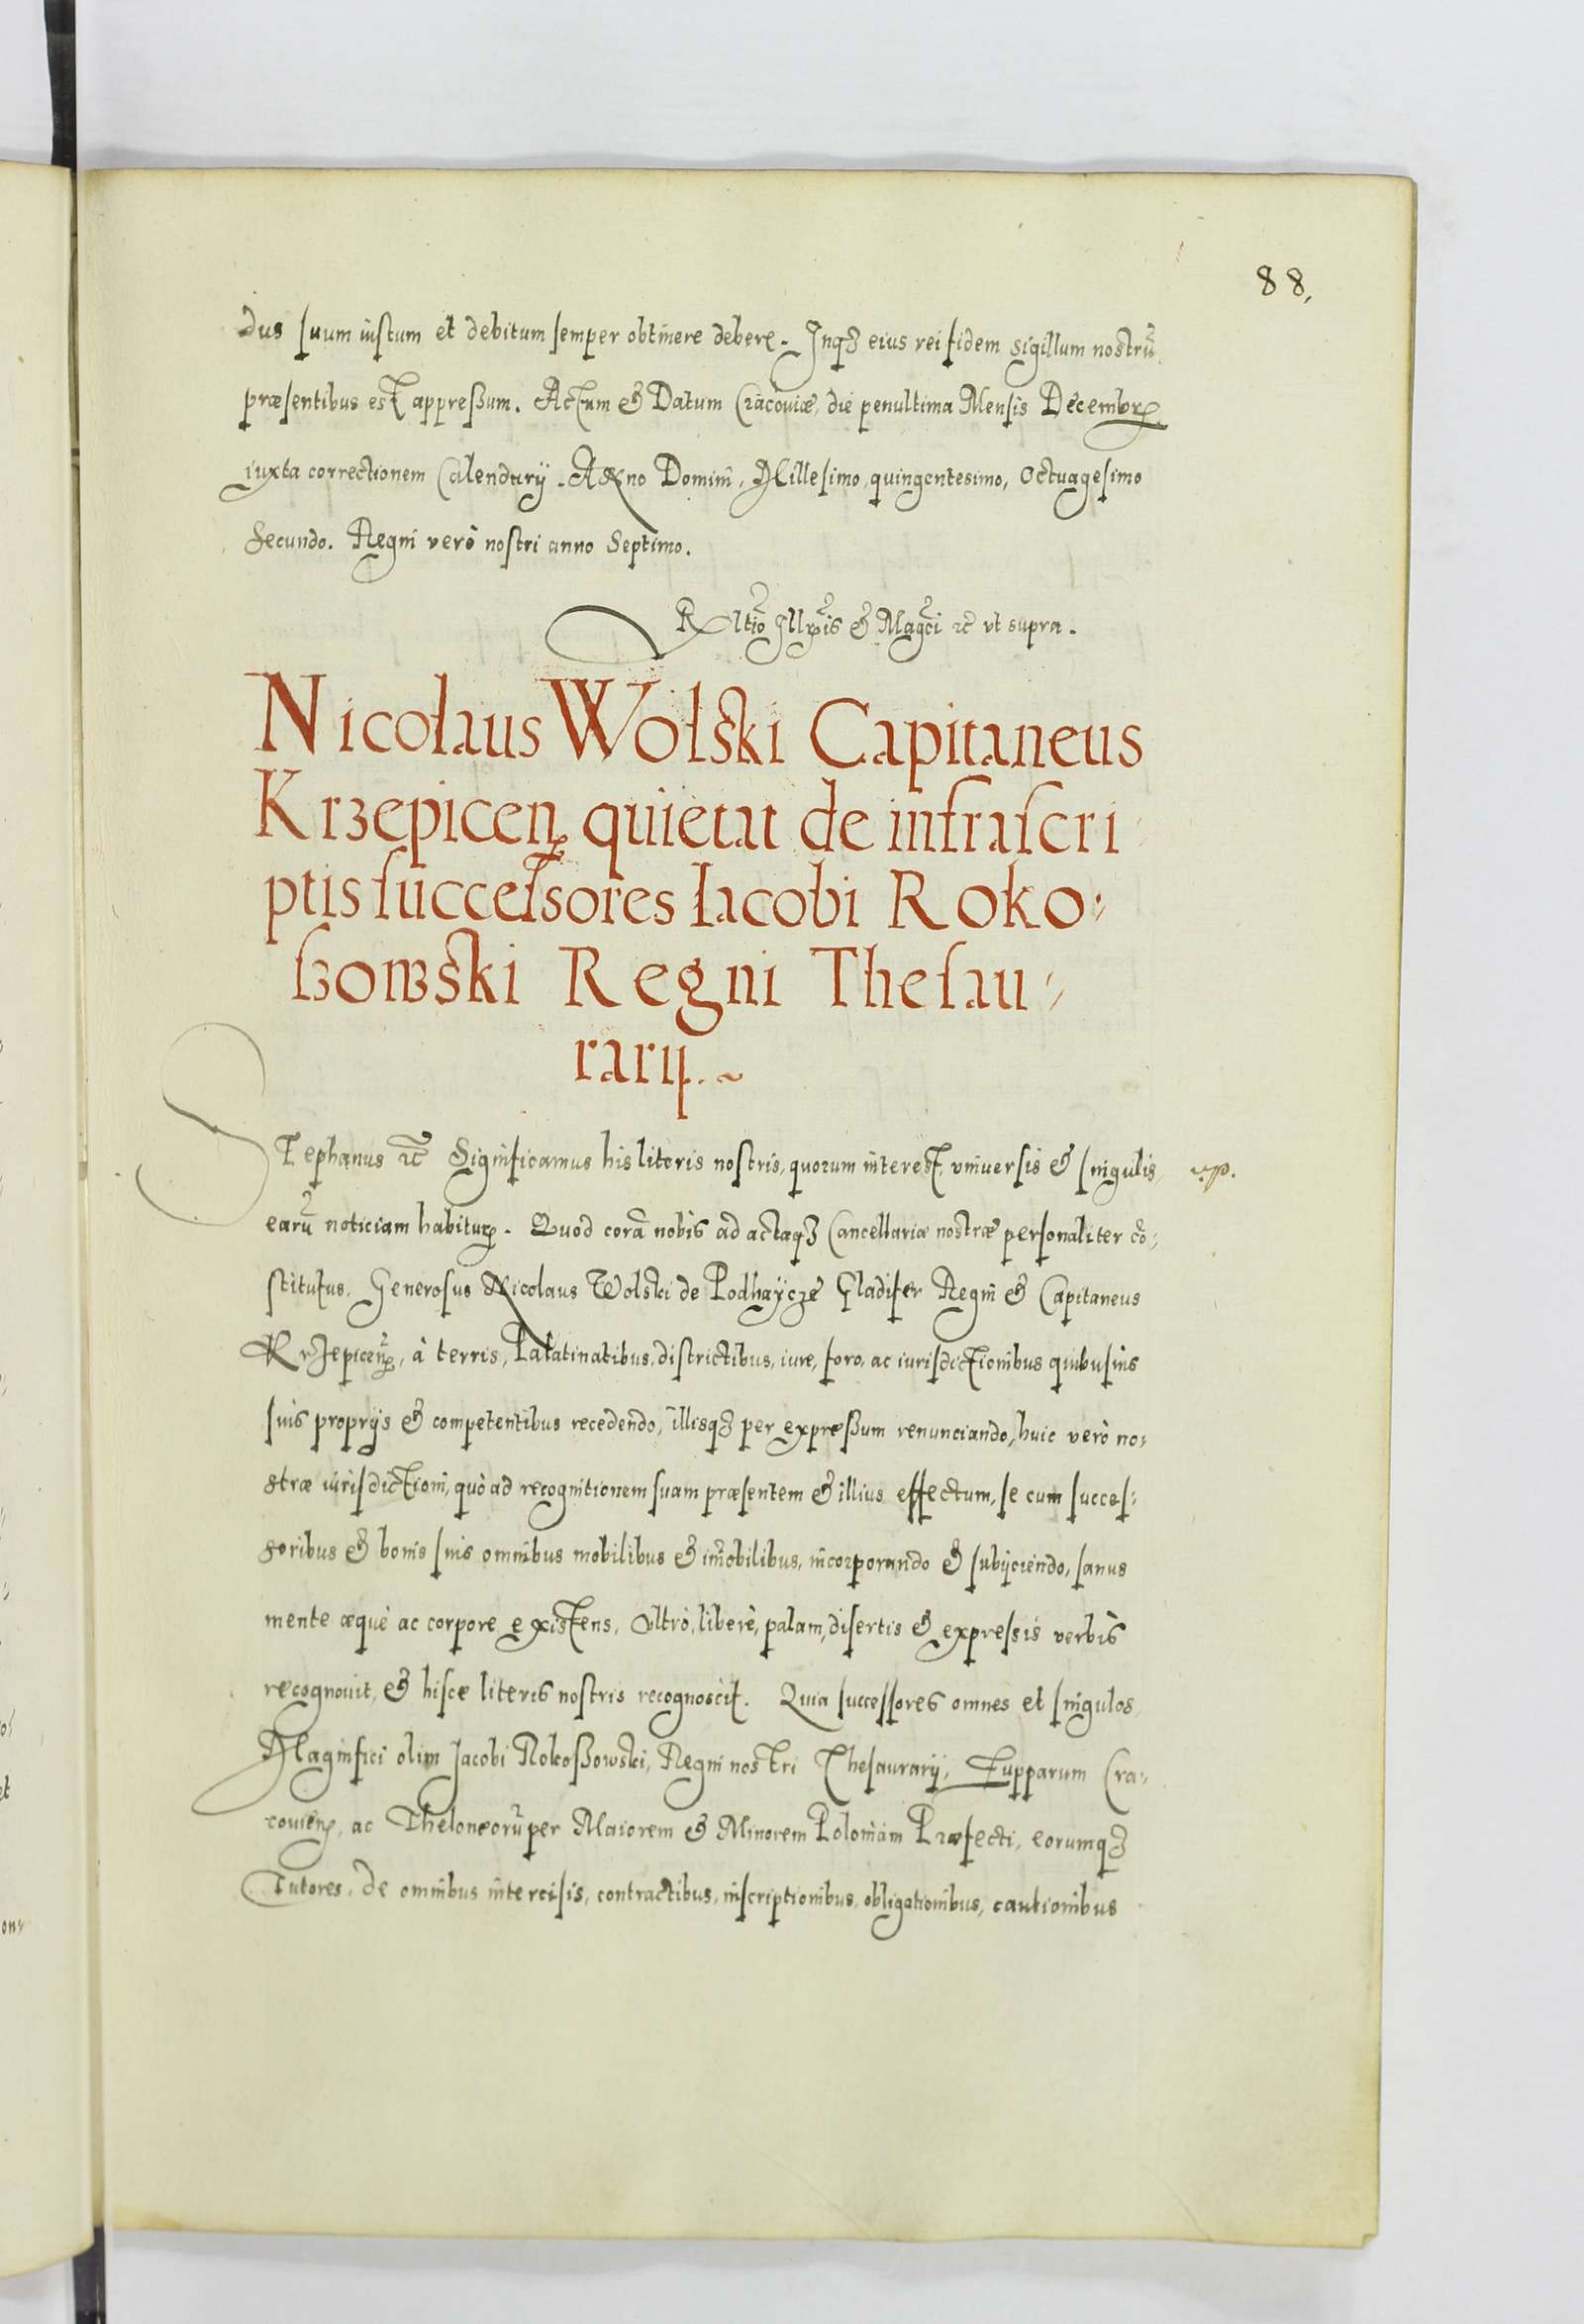 88,
dus suum iustum et debitum semper obtinere debere. Inqꝫ eius rei fidem sigillum nostrũ
præsentibus est appreßum. Actum & Datum Cracouiæ, die penultima Mensis Decembrꝭ
iuxta correctionem Calendarij. Anno Domini, Millesimo, quingentesimo, Octuagesimo
Secundo. Regni verò nostri anno Septimo.
Rltio Illris & Magci ꝛc̃ vt supra.
Nicolaus Wolski Capitaneus
Krzepiceñ quietat de infrascri
ptis successores Iacobi Roko⸗
szowski Regni Thesau⸗
rarij. ~
STephanus ꝛc̃ Significamus his literis nostris, quorum interest, vniuersis & singulis,
earũ noticiam habiturꝭ. Quod corã nobis ad actaqꝫ Cancellariæ nostræ personaliter cõ⸗
stitutus, Generosus Nicolaus Wolski de Podhaycze Gladifer Regni & Capitaneus
Krzepiceñ, à terris, Palatinatibus, districtibus, iure, foro, ac iurisdictionibus quibusuis
suis proprijs & competentibus recedendo, illisqꝫ per expreßum renunciando, huic verò no⸗
stræ iurisdictioni, quò ad recognitionem suam præsentem & illius effectum, se cum succes⸗
soribus & bonis suis omnibus mobilibus & im̃obilibus, incorporando & subijciendo, sanus
mente æquè ac corpore existens, Vltrò, liberè, palam, disertis & expressis verbis
recognouit, & hisce literis nostris recognoscit. Quia successores omnes et singulos
Magnifici olim Jacobi Rokoßowski, Regni nostri Thesaurarij, Zupparum Cra⸗
couieñ, ac Theloneorũ per Maiorem & Minorem Poloniam Præfecti, eorumqꝫ
Tutores, de omnibus intercisis, contractibus, inscriptionibus, obligationibus, cautionibus